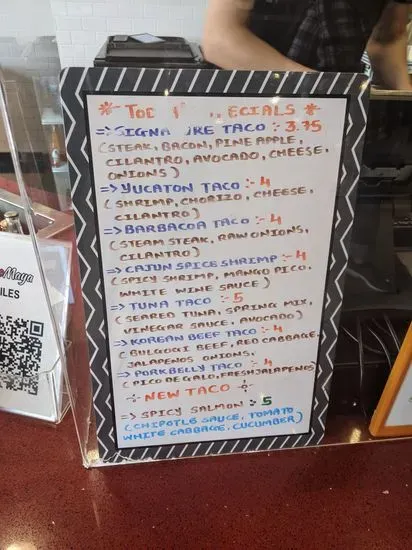 * TOD ECIALS *
=> SIGNA RE TACO :- 3.75
(STEAK, BACON, PINEAPPLE,
CILANTRO, AVOCADO, CHEESE,
ONIONS)
=> YUCATON TACO :- 4
(SHRIMP, CHORIZO, CHEESE,
CILANTRO)
=> BARBACOA TACO :- 4
(STEAM STEAK, RAW ONIONS,
CILANTRO)
=> CAJUN SPICE SHRIMP :- 4
(SPICY SHRIMP, MANGO PICO,
WHITE WINE SAUCE)
=> TUNA TACO :- 5
(SEARED TUNA, SPRING MIX,
VINEGAR SAUCE, AVOCADO)
=> KOREAN BEEF TACO :- 4
(BULGOGI BEEF, RED CABBAGE,
JALAPENOS ONIONS,
=> PORK BELLY TACO :- 4
(PICO DE GALO, FRESH JALAPENOS)
NEW TACO
=> SPICY SALMON :- 5
(CHIPOTLE SAUCE, TOMATO
WHITE CABBAGE, CUCUMBER)
Maya
ILES